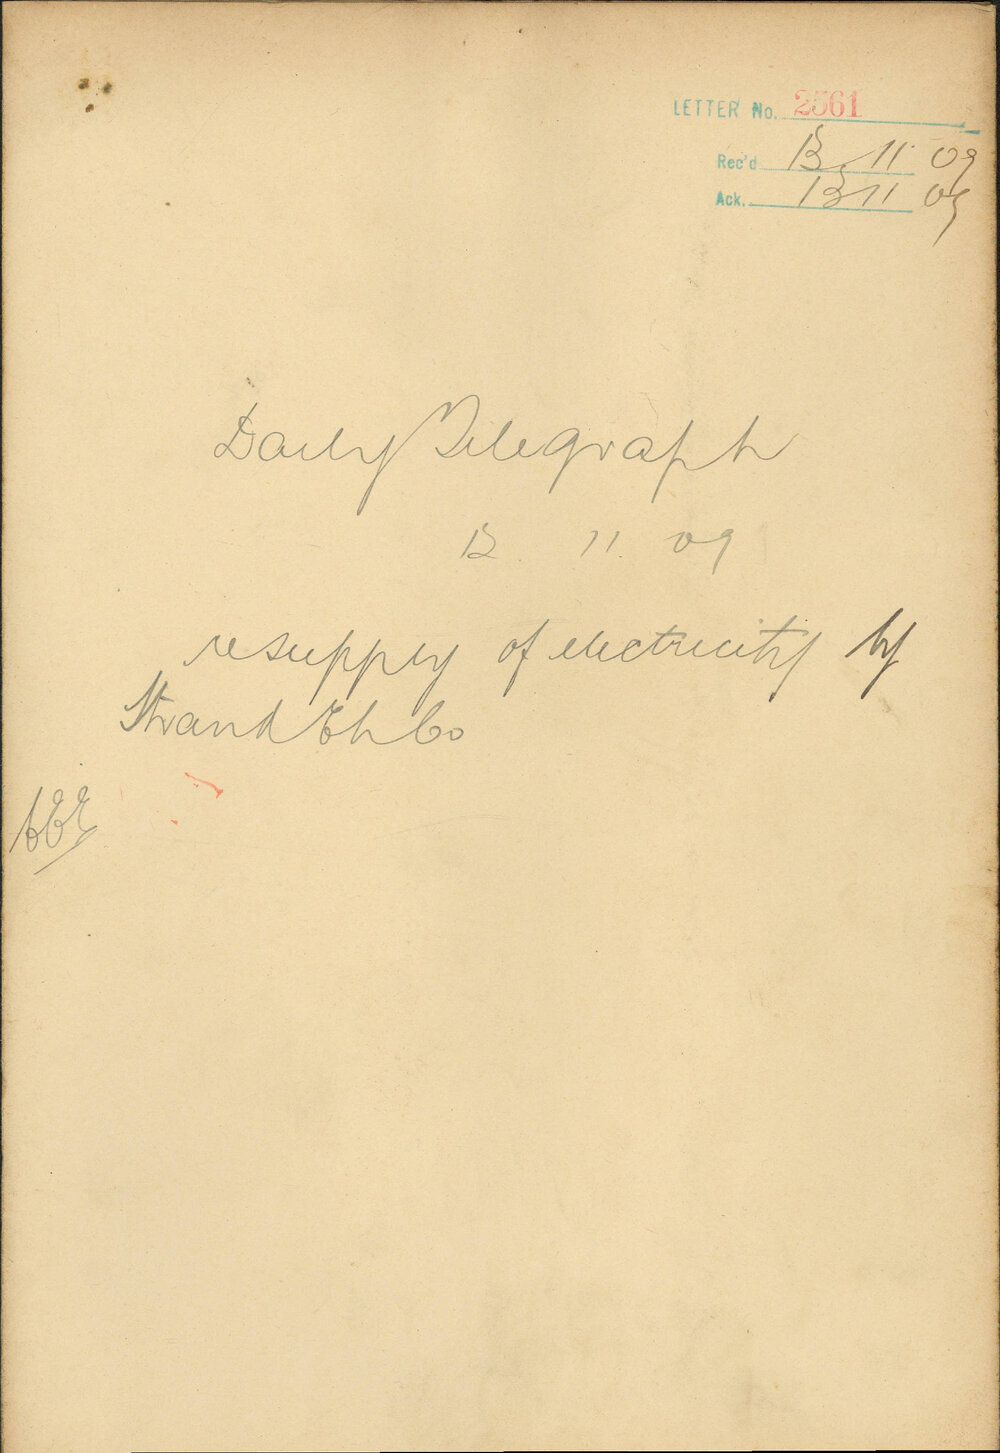 LETTER No. 2561
Rec'd 13 11 09
Ack. 13 11 09
Daily Telegraph
12. 11. 09
re supply of electricity by
Strand Eh Co